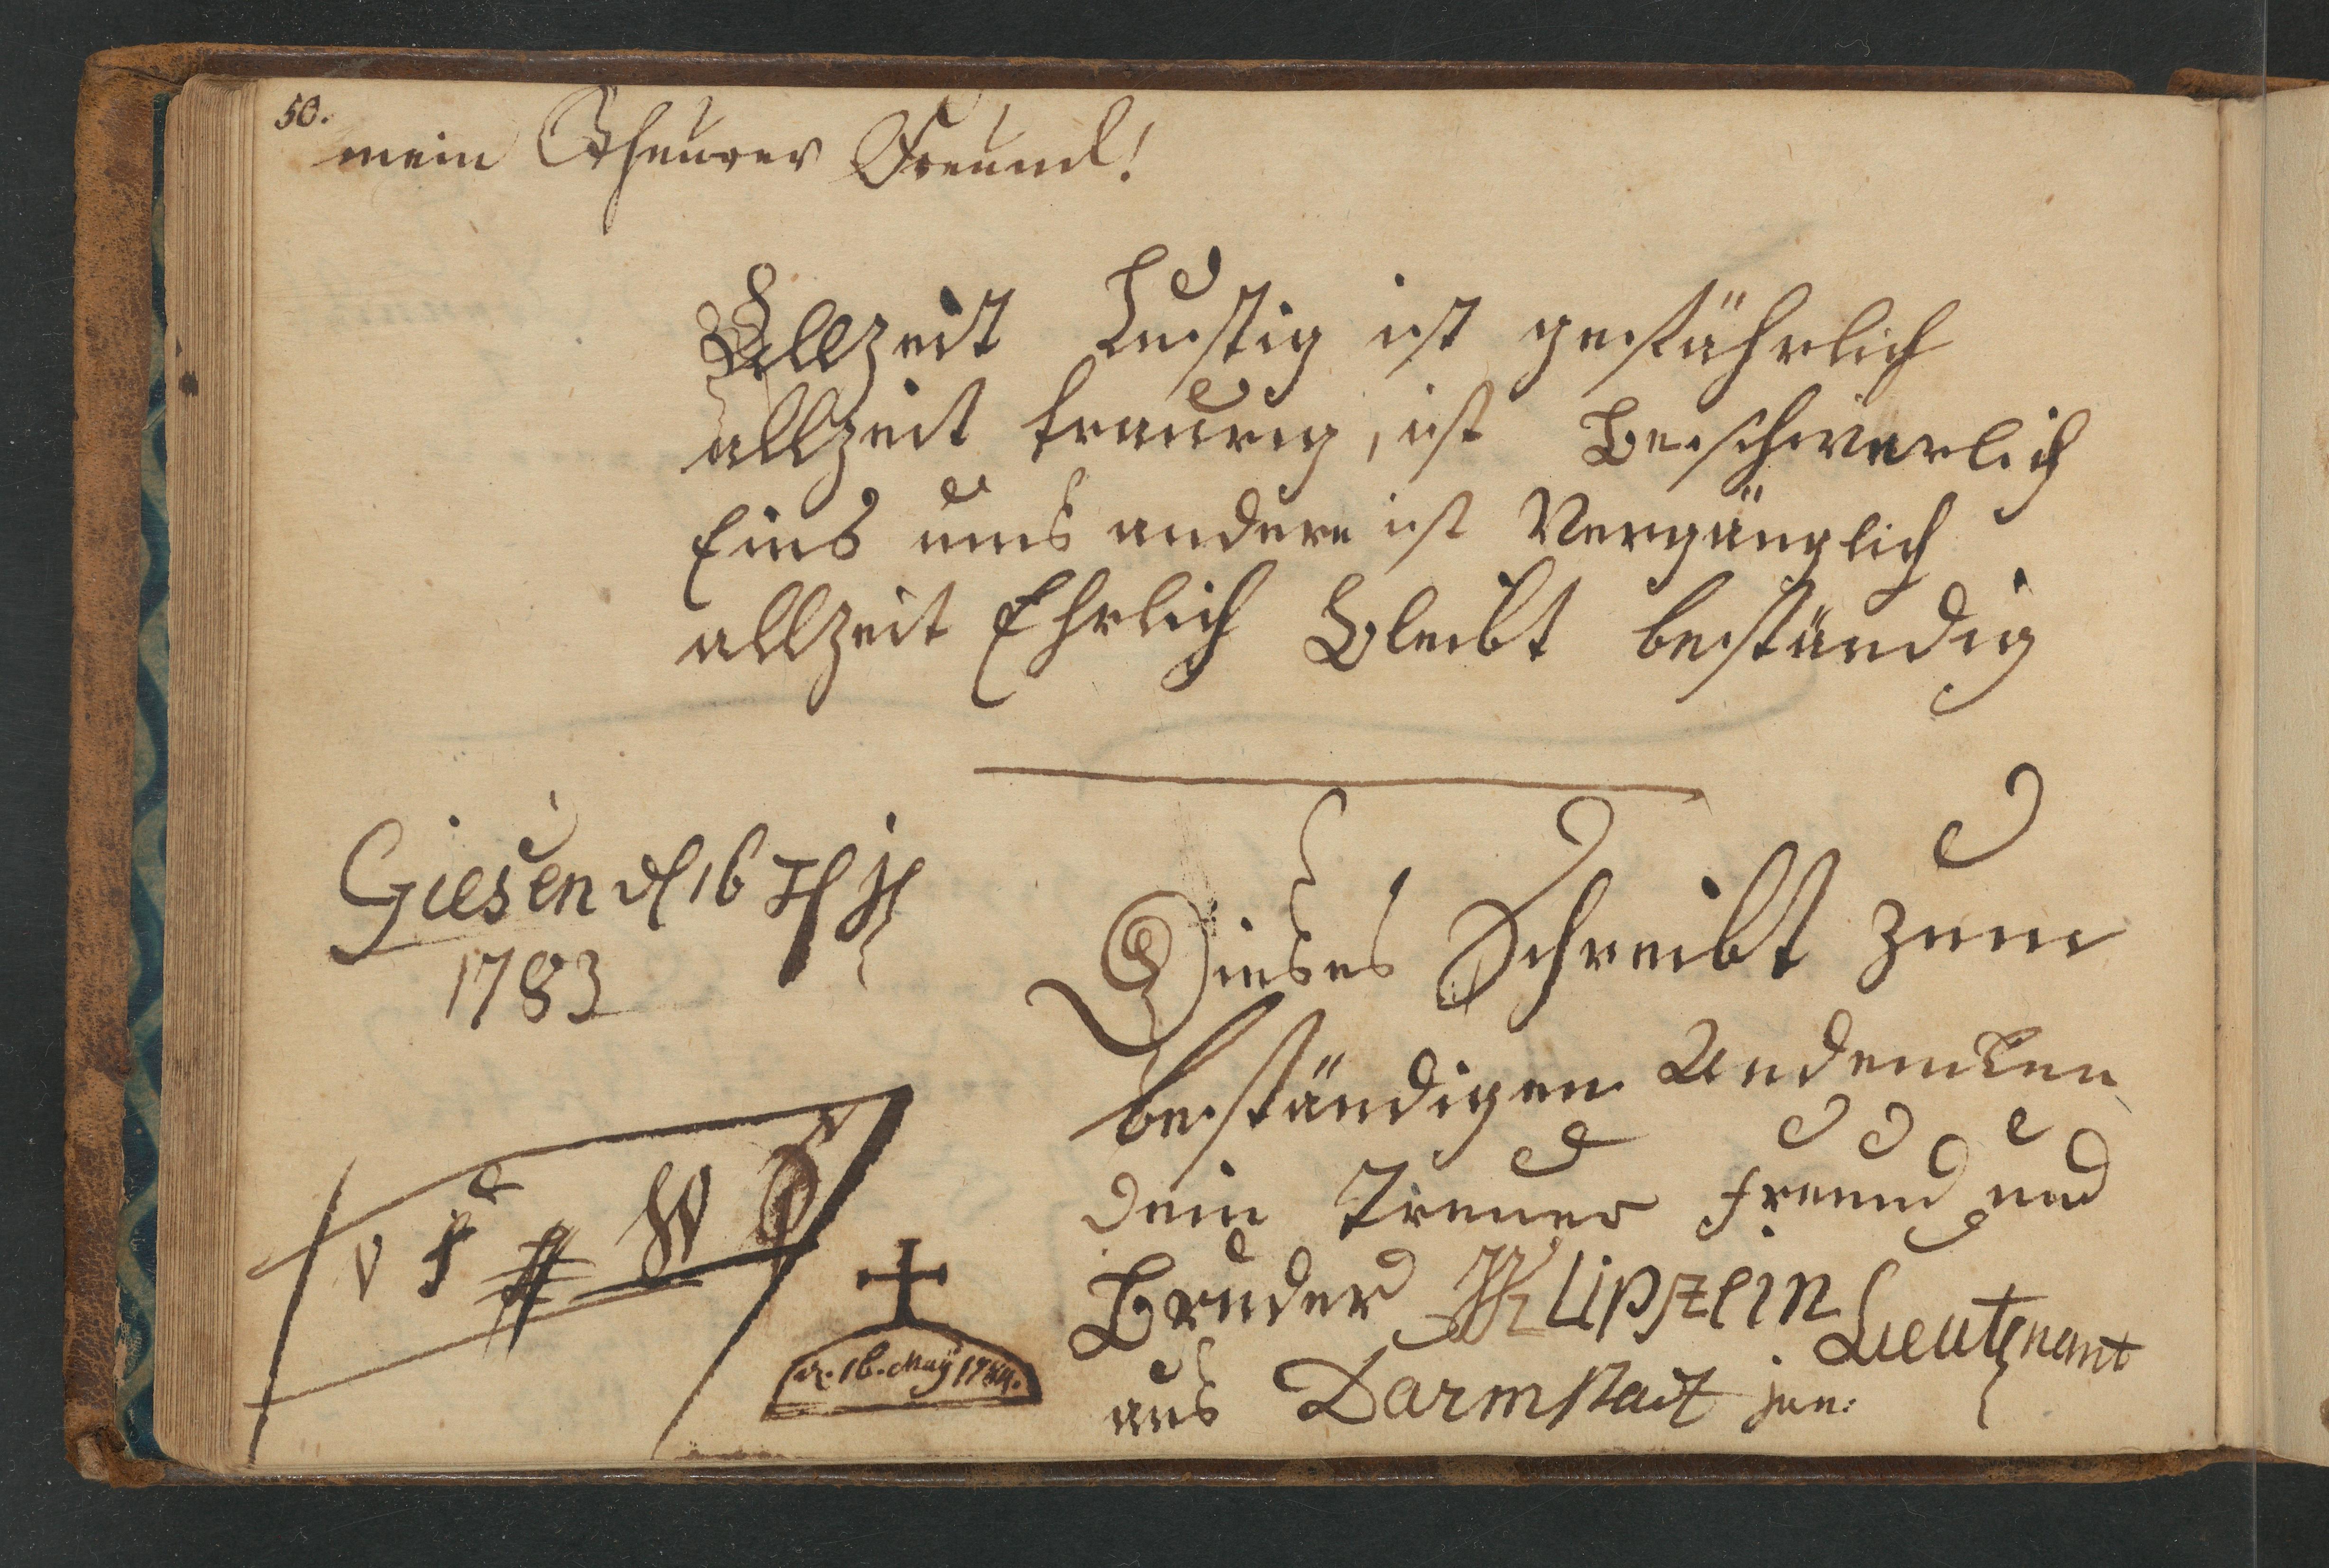 50.
mein Theurer Freund!
Allzeit Lustig ist gefährlich
allzeit traurig, ist Beschwerlich
Eins ums andere ist Vergänglich
allzeit Ehrlich Bleibt beständig
Giesen d 16
1783
Dieses Schreibt zum
beständigen Andencken
dein Treuer freund und
Bruder Klipstein Lieutenant
aus Darmstadt jun:
V
W
d. 16. May 1784.